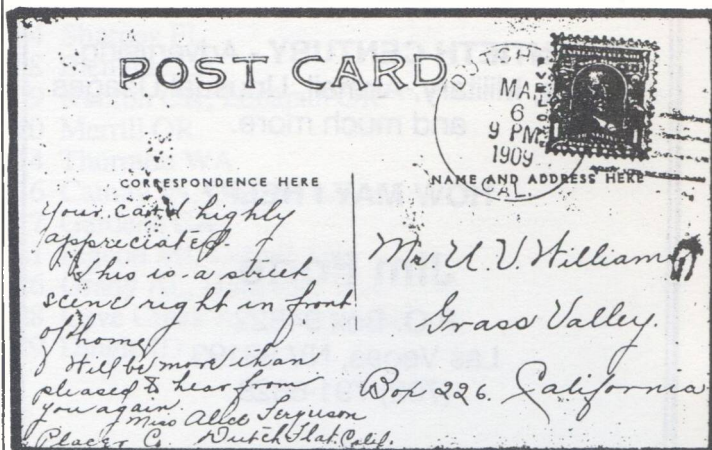 POST CARD
MAR
6
9 PM
1909
CAL.
CORRESPONDENCE HERE
NAME AND ADDRESS HERE
Your card highly
appreciated.
This is a street
scene right in front
of home,
Will be more than
pleased to hear from
you again.
Miss Ferguson
Placer Co. Dutch Flat, Calif.
Mr. U. V. Williams
Grass Valley.
Box 226. California